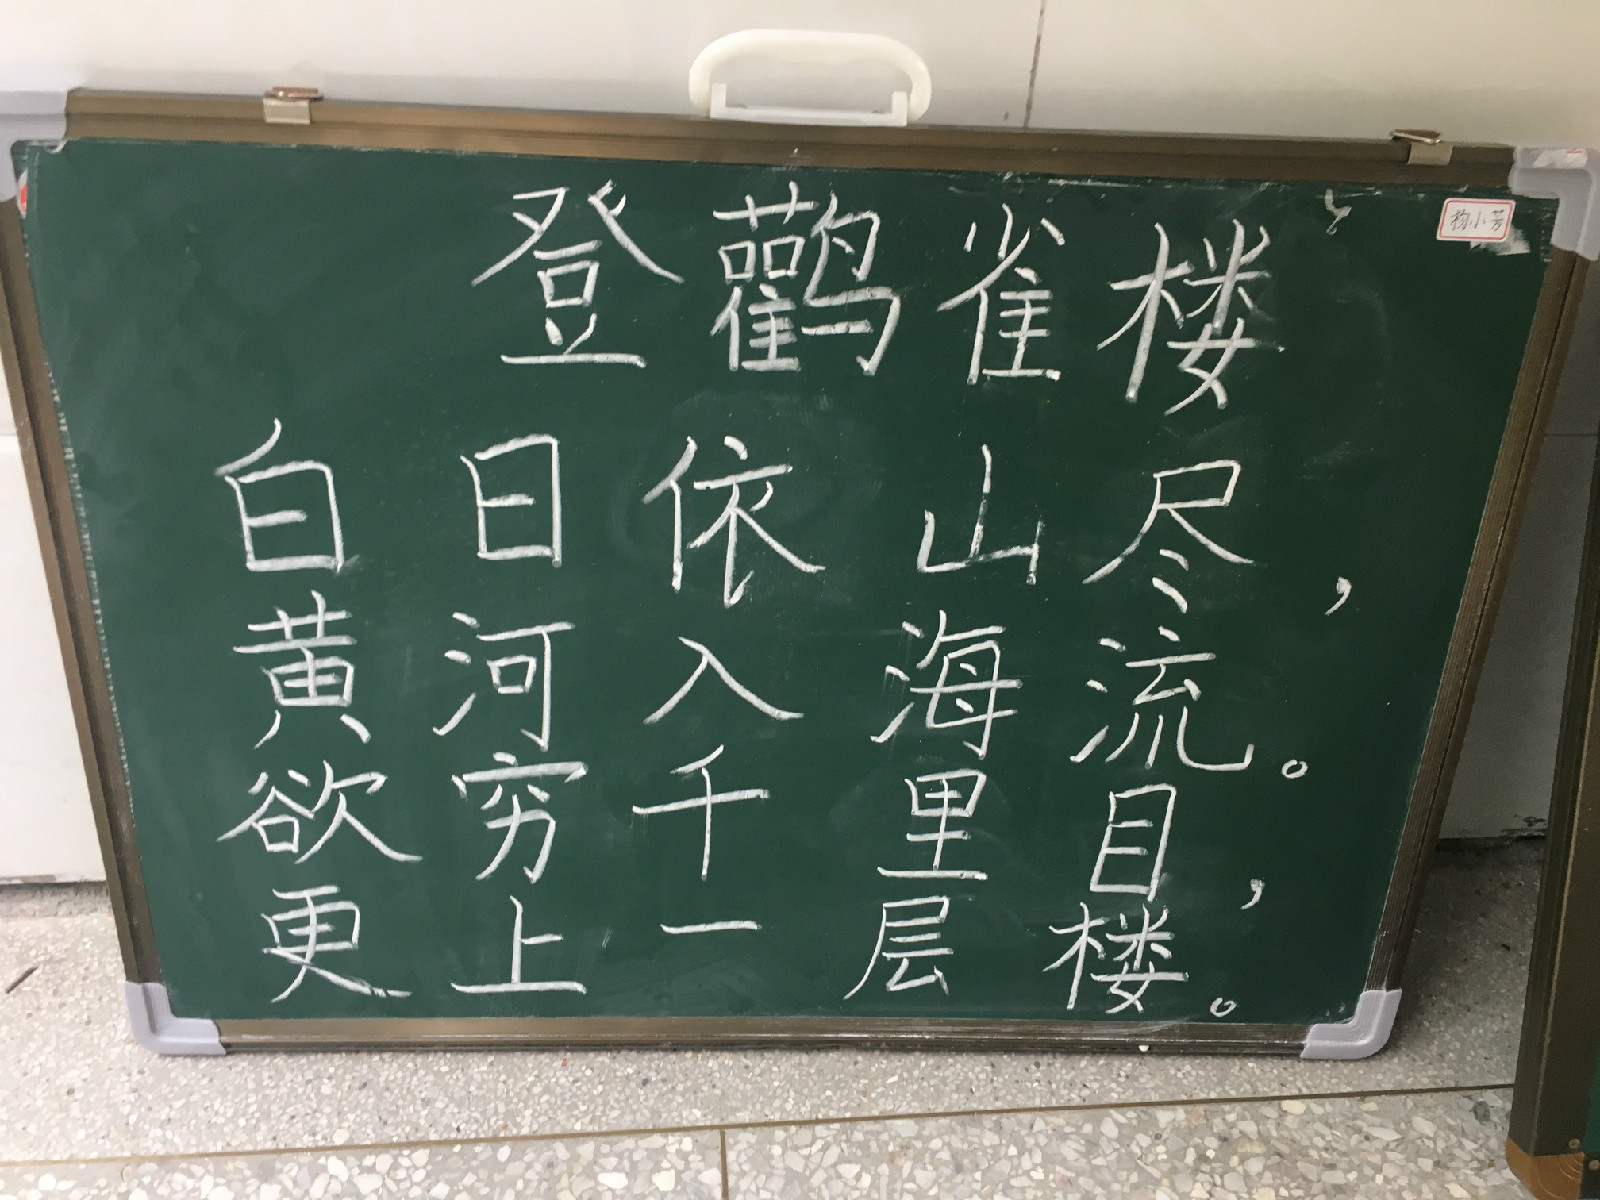 登鹳雀楼
杨小芳
白日依山尽，
黄河入海流。
欲穷千里目，
更上一层楼。